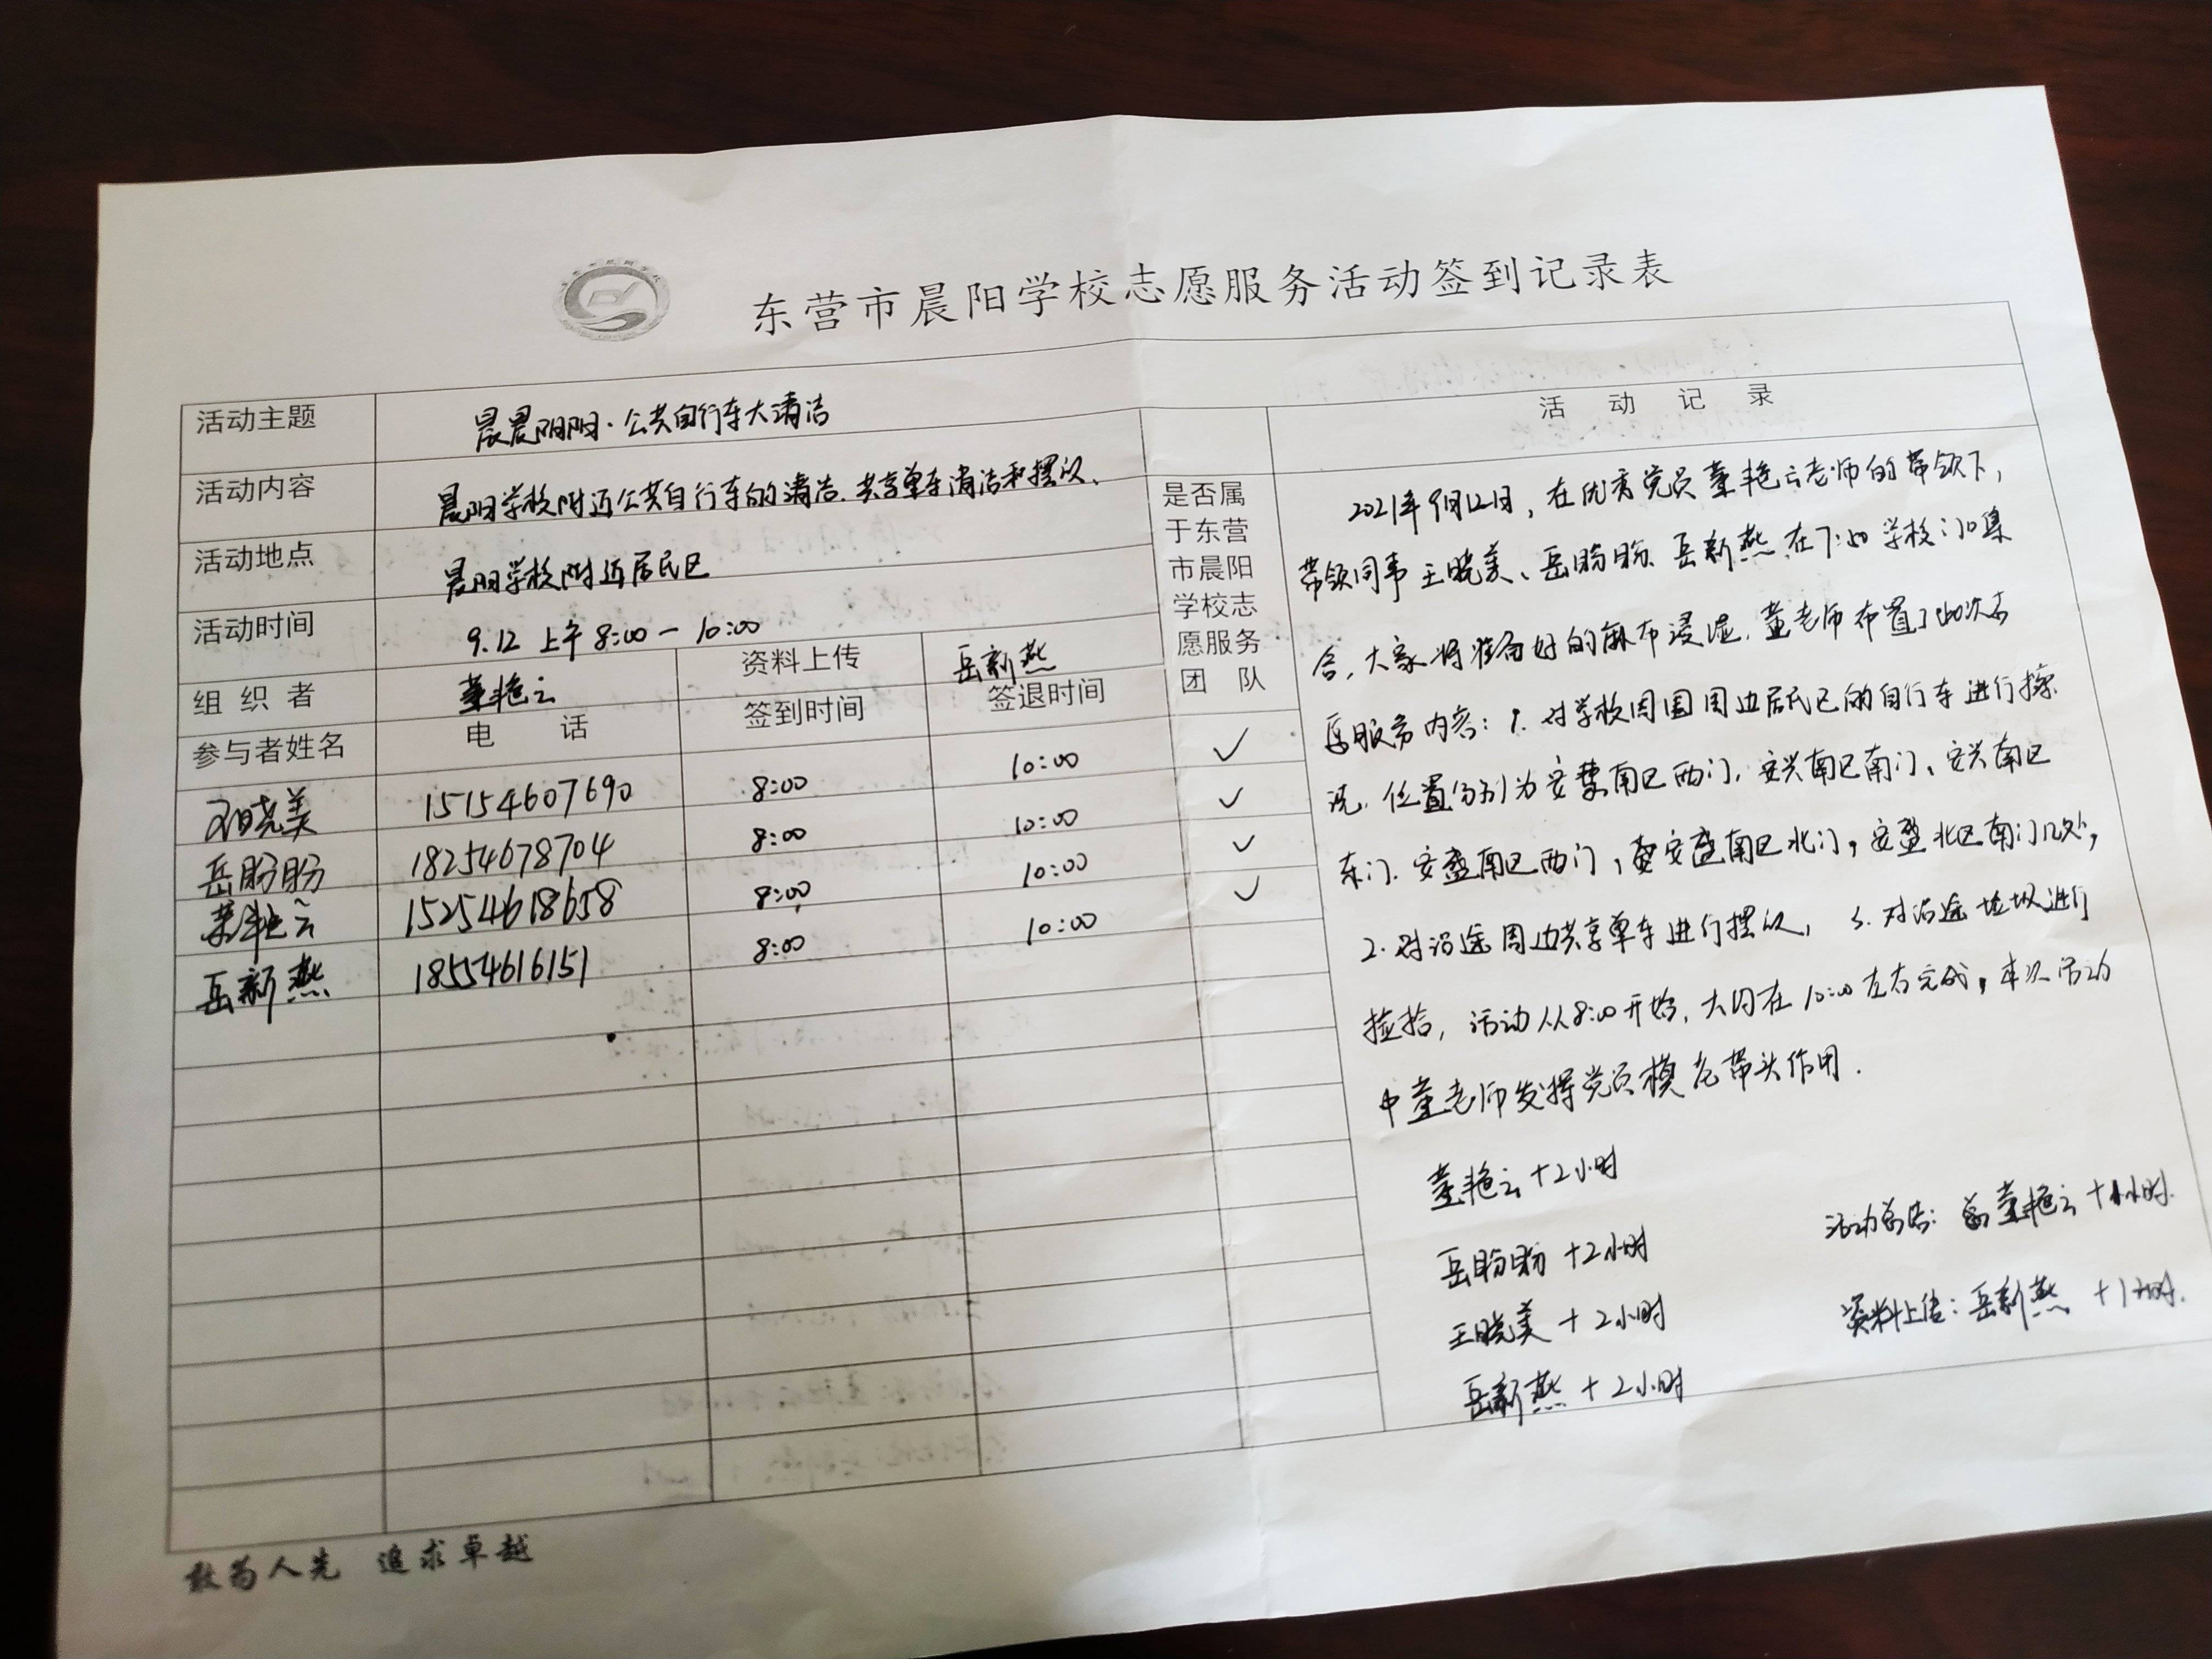 东营市晨阳学校志愿服务活动签到记录表
活动主题 晨晨阳阳·公共自行车大清洁
活动内容 晨阳学校附近公共自行车的清洁、共享单车清洁和摆放、
活动地点 晨阳学校附近居民区
活动时间 9.12 上午 8:00—10:00
组织者 董艳云 资料上传 岳新燕
参与者姓名 电话 签到时间 签退时间
是否属
于东营
市晨阳
学校志
愿服务
团队
王晓美 15154607690 8:00 10:00 ✓
岳盼盼 18254678704 8:00 10:00 ✓
董艳云 15254618658 8:00 10:00 ✓
岳新燕 18554616151 8:00 10:00 ✓
活动记录
2021年9月12日，在优秀党员董艳云老师的带领下，
带领同事王晓美、岳盼盼、岳新燕在7:50学校门口集
合，大家将准备好的麻布浸湿，董老师布置了此次志
愿服务内容：1.对学校周围周边居民区的自行车进行擦
洗，位置分别为安慧南区西门，安兴南区南门、安兴南区
东门、安盛南区西门，安盛南区北门，安盈北区南门几处，
2.对沿途周边共享单车进行摆放， 3.对沿途垃圾进行
捡拾，活动从8:00开始，大约在10:00左右完成，本次活动
中董老师发挥党员模范带头作用.
董艳云+2小时
岳盼盼+2小时
王晓美+2小时
岳新燕+2小时
活动 董艳云+1小时.
资料上传：岳新燕 +1小时.
敢为人先 追求卓越